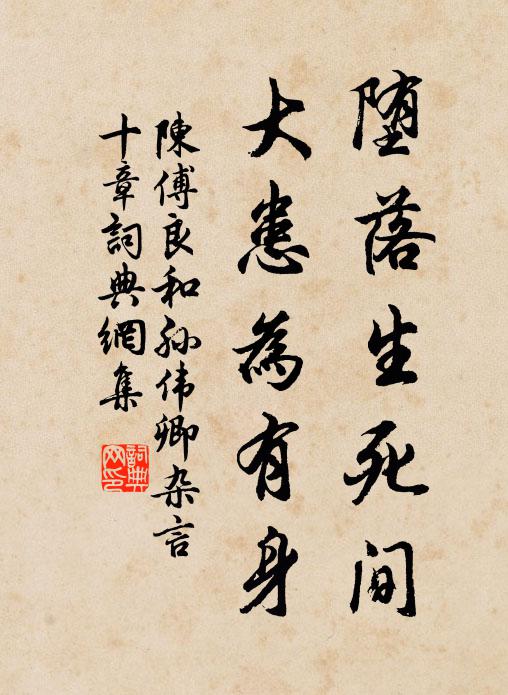 堕落生死间
大患為有身
陳傅良和孙伟卿杂言
十章詞典網集
詞典
网印